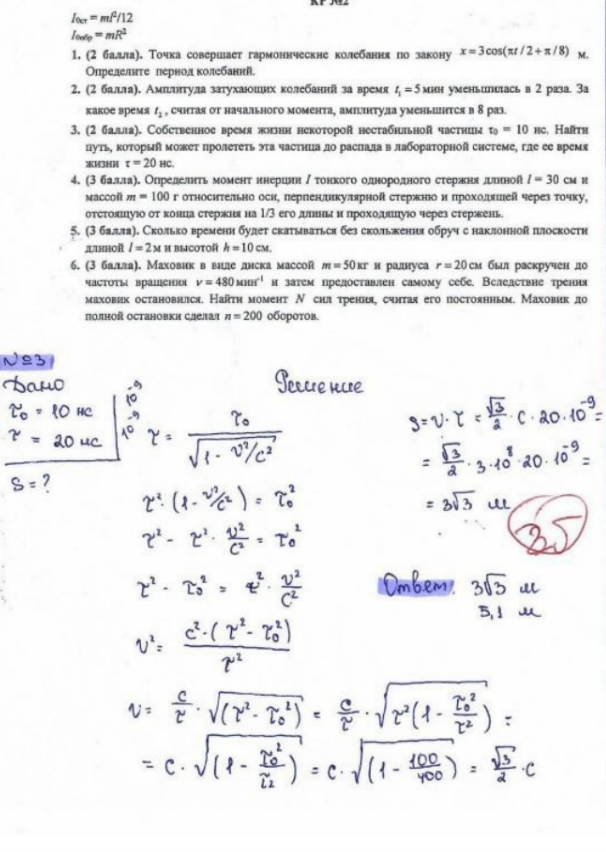 КР №2
I₀ст = ml²/12
I₀обр = mR²
1. (2 балла). Точка совершает гармонические колебания по закону x = 3cos(πt / 2 + π / 8) м.
Определите период колебаний.
2. (2 балла). Амплитуда затухающих колебаний за время t₁ = 5 мин уменьшилась в 2 раза. За
какое время t₂, считая от начального момента, амплитуда уменьшится в 8 раз.
3. (2 балла). Собственное время жизни некоторой нестабильной частицы τ₀ = 10 нс. Найти
путь, который может пролететь эта частица до распада в лабораторной системе, где ее время
жизни τ = 20 нс.
4. (3 балла). Определить момент инерции I тонкого однородного стержня длиной l = 30 см и
массой m = 100 г относительно оси, перпендикулярной стержню и проходящей через точку,
отстоящую от конца стержня на 1/3 его длины и проходящую через стержень.
5. (3 балла). Сколько времени будет скатываться без скольжения обруч с наклонной плоскости
длиной l = 2 м и высотой h = 10 см.
6. (3 балла). Маховик в виде диска массой m = 50 кг и радиуса r = 20 см был раскручен до
частоты вращения ν = 480 мин⁻¹ и затем предоставлен самому себе. Вследствие трения
маховик остановился. Найти момент N сил трения, считая его постоянным. Маховик до
полной остановки сделал n = 200 оборотов.
№3
Дано
τ₀ = 10 нс 10⁻⁹
τ = 20 нс 10⁻⁹
S = ?
Решение
τ = τ₀ / √(1 - v²/c²)
τ² · (1 - v²/c²) = τ₀²
τ² - τ² · v²/c² = τ₀²
τ² - τ₀² = τ² · v²/c²
v² = c² · (τ² - τ₀²) / τ²
v = c/τ · √(τ² - τ₀²) = c/τ · √(τ²(1 - τ₀²/τ²)) =
= c · √(1 - τ₀²/τ²) = c · √(1 - 100/400) = √3/2 · c
S = v · τ = √3/2 · c · 20 · 10⁻⁹ =
= √3/2 · 3 · 10⁸ · 20 · 10⁻⁹ =
= 3√3 м
Ответ: 3√3 м
5,1 м